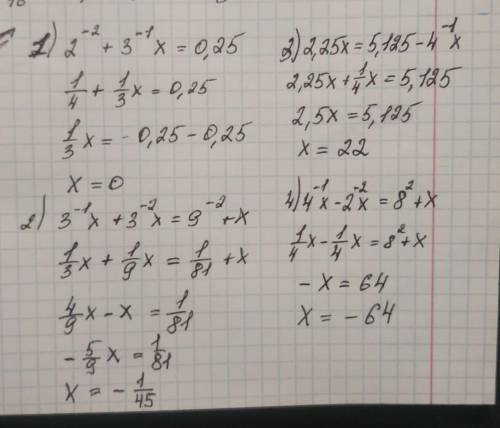 1) 2^{-2} + 3^{-1}x = 0,25
1/4 + 1/3 x = 0,25
1/3 x = 0,25 - 0,25
x = 0
2) 3^{-1}x + 3^{-2}x = 9^{-2} + x
1/3 x + 1/9 x = 1/81 + x
4/9 x - x = 1/81
- 5/9 x = 1/81
x = - 1/45
3) 2,25x = 5,125 - 4^{-1}x
2,25x + 1/4 x = 5,125
2,5x = 5,125
x = 22
4) 4^{-1}x - 2^{-2}x = 8^2 + x
1/4 x - 1/4 x = 8^2 + x
- x = 64
x = - 64